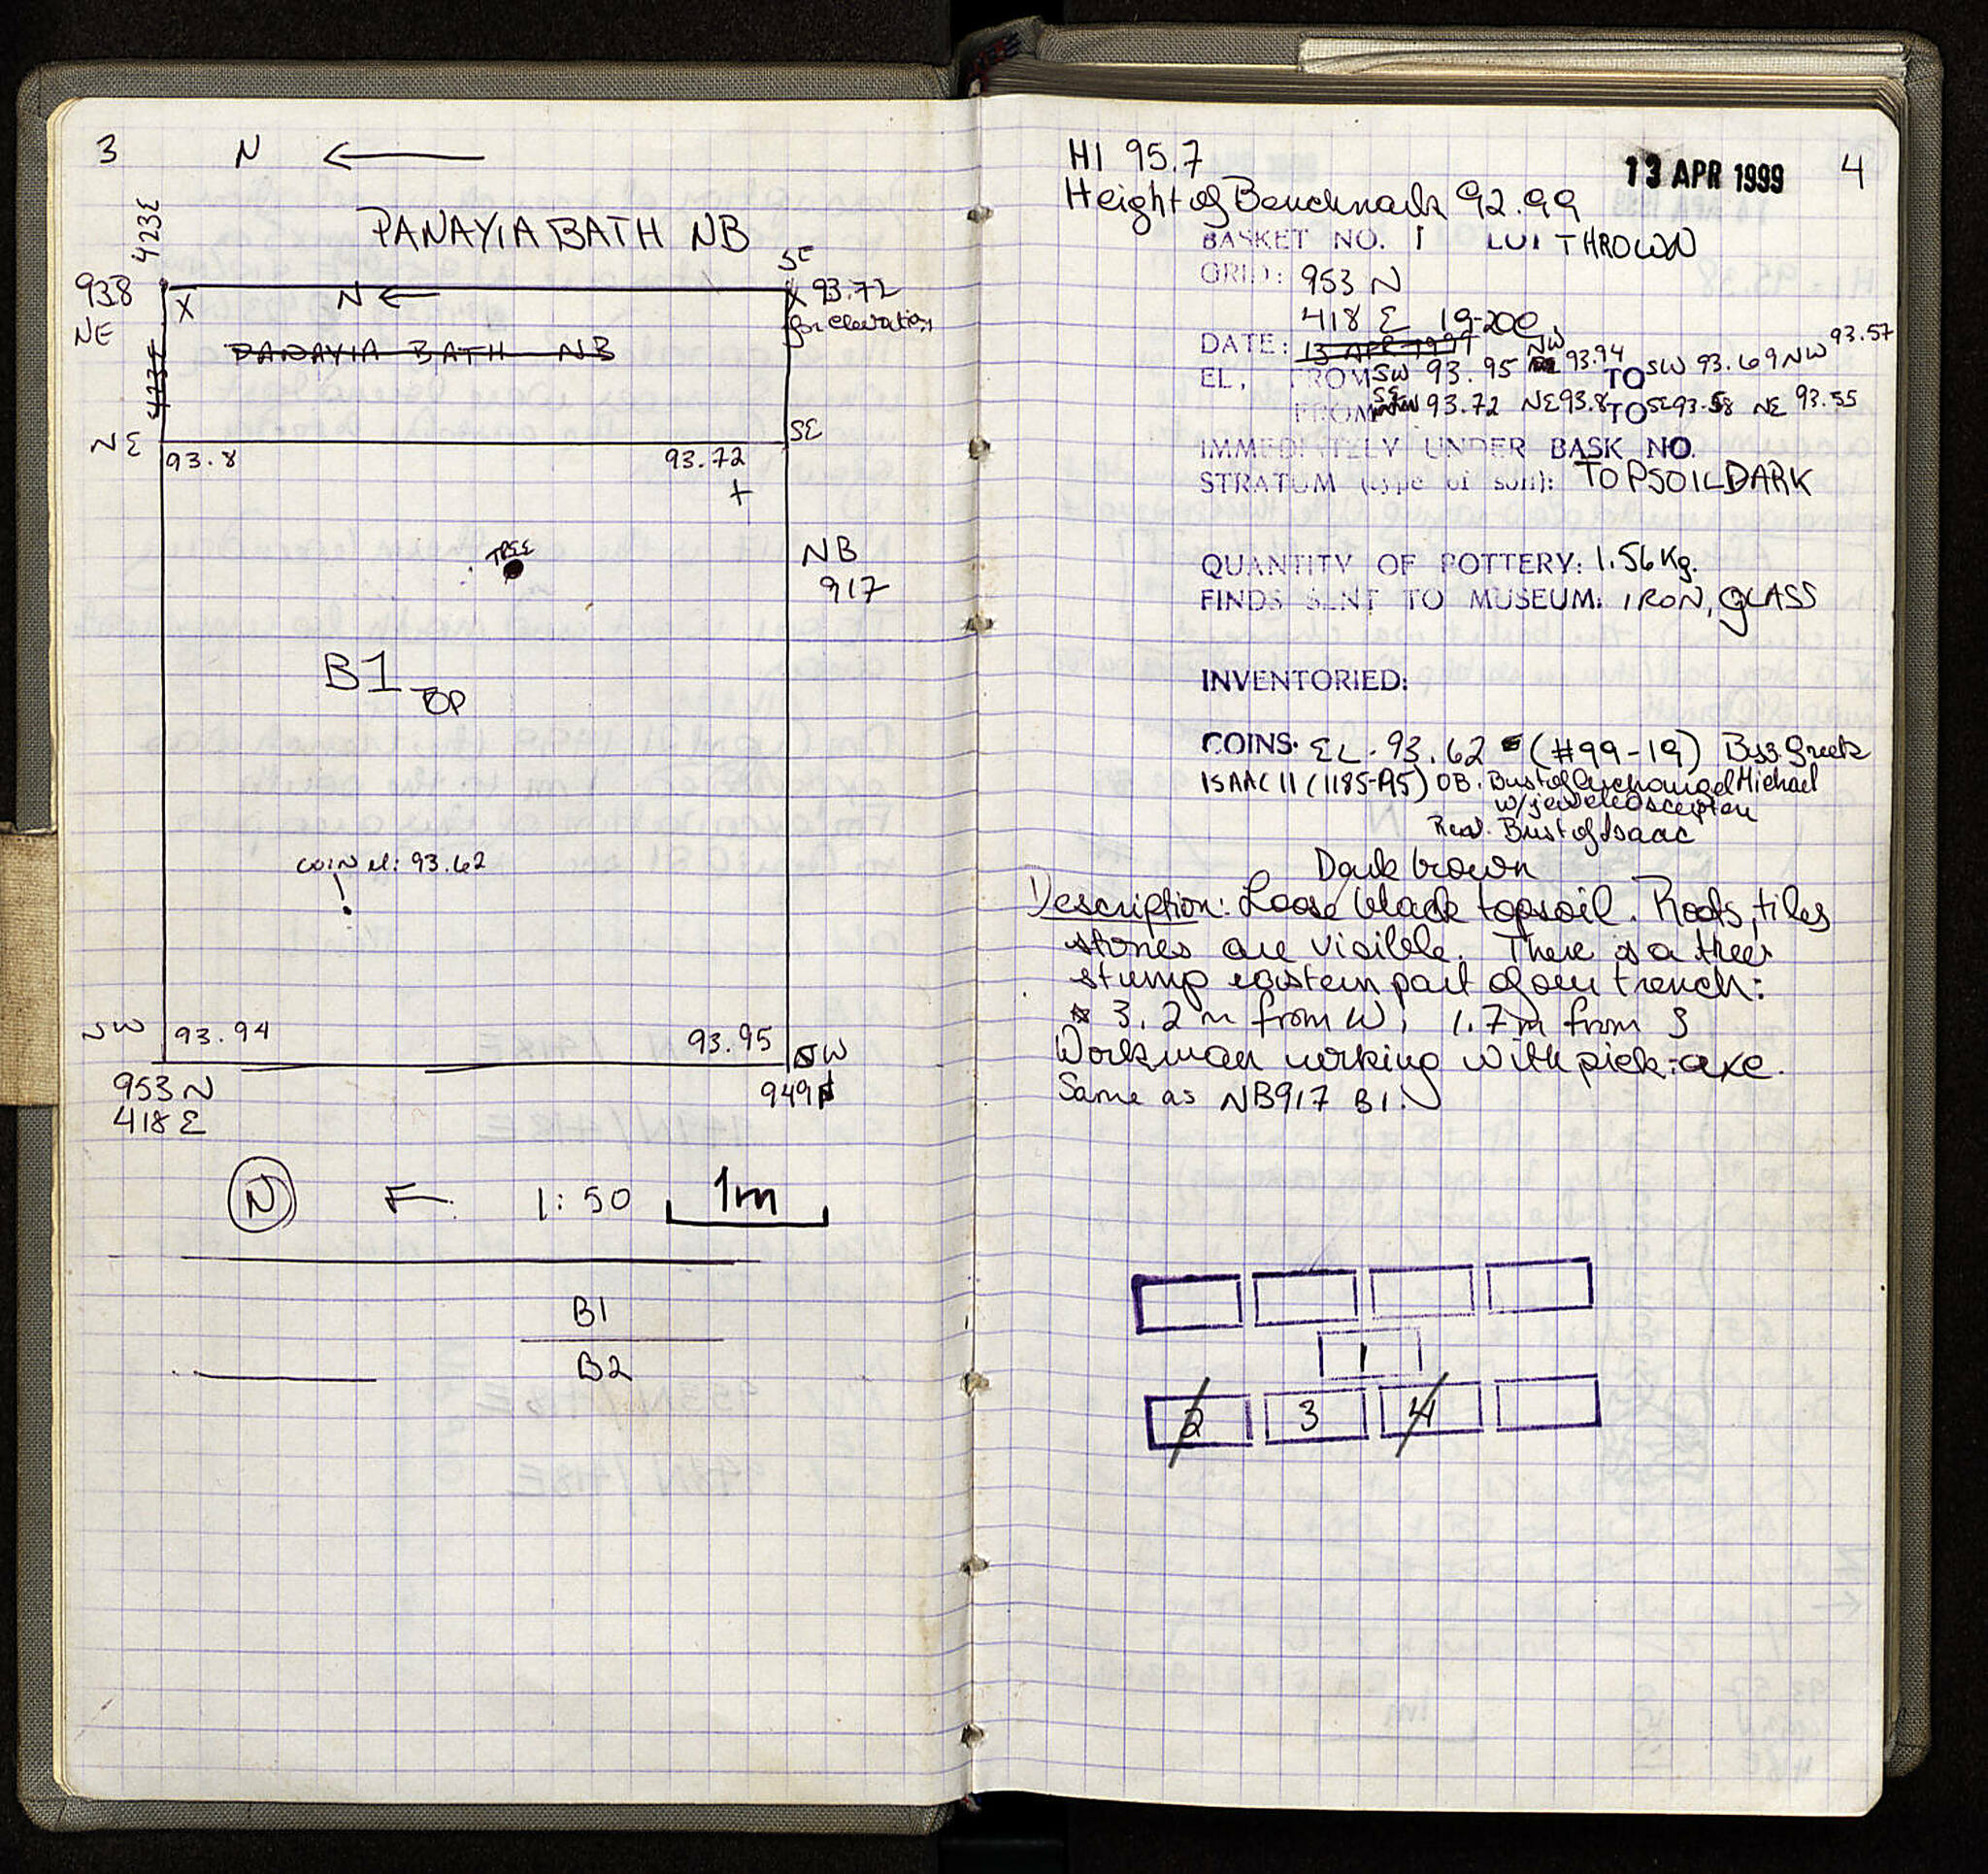 3 N
423E
PANAYIA BATH NB
SE
938
NE
X N X 93.72
for elevation
PANAYIA BATH NB
423E
NE SE
93.8 93.72
TREE
NB
917
B1 TOP
coin el: 93.62
93.94 93.95 SW
953 N 949
418 E
N 1:50 1m
B1
B2
HI 95.7
13 APR 1999 4
Height of Benchmark 92.99
BASKET NO. 1 LOT THROWN
GRID: 953 N
418 E
DATE: 13 APR 1999 NW
EL, FROM SW 93.95 93.94 TO SW 93.69 NW 93.57
FROM 93.72 NE 93.8 TO SE 93.58 NE 93.55
IMMEDIATELY UNDER BASK NO.
STRATUM (type of soil): TOPSOIL DARK
QUANTITY OF POTTERY: 1.56 Kg.
FINDS SENT TO MUSEUM: IRON, GLASS
INVENTORIED:
COINS: EL. 93.62 (#99-19) Byz Greek
ISAAC II (1185-95) OB. Bust of Archangel Michael
w/jeweled scepter
Rev. Bust of Isaac
Dark brown
Description: Loose black topsoil. Roots, tiles
stones are visible. There is a tree
stump eastern part of our trench:
3.2 m from W; 1.7 m from S
Workman working with pick-axe.
Same as NB917 B1.
1
2 3 4